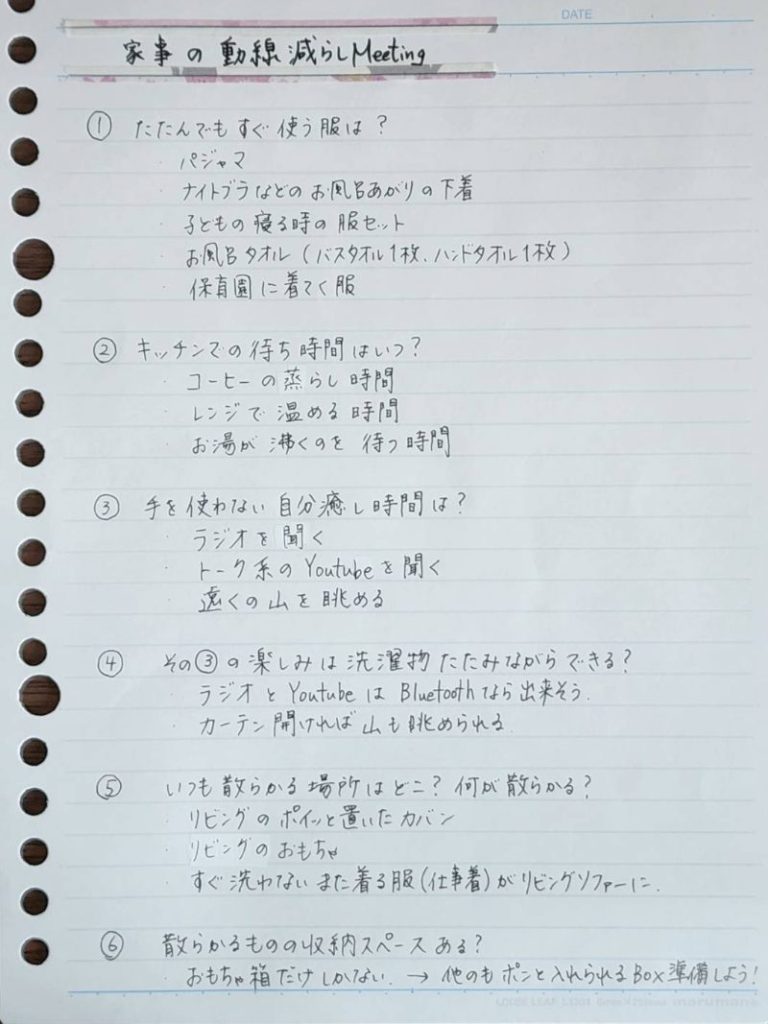 DATE
家事の動線減らしMeeting
① たたんでもすぐ使う服は？
・パジャマ
・ナイトブラなどのお風呂あがりの下着
・子どもの寝る時の服セット
・お風呂タオル（バスタオル1枚、ハンドタオル1枚）
・保育園に着てく服
② キッチンでの待ち時間はいつ？
・コーヒーの蒸らし時間
・レンジで温める時間
・お湯が沸くのを待つ時間
③ 手を使わない自分癒し時間は？
・ラジオを聞く
・トーク系のYoutubeを聞く
・遠くの山を眺める
④ その③の楽しみは洗濯物たたみながらできる？
・ラジオとYoutubeはBluetoothなら出来そう。
・カーテン開ければ山も眺められる
⑤ いつも散らかる場所はどこ？何が散らかる？
・リビングのポイッと置いたカバン
・リビングのおもちゃ
・すぐ洗わないまた着る服（仕事着）がリビングソファーに。
⑥ 散らかるものの収納スペースある？
・おもちゃ箱だけしかない。→ 他のもポンと入れられるBox準備しよう！
LOOSE LEAF L1201 6mm×35lines maruman